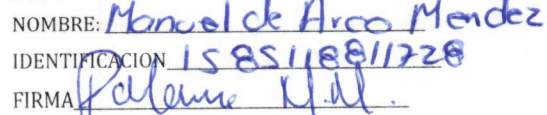 NOMBRE: Manuel de Arco Mendez
IDENTIFICACION 1585118811728
FIRMA